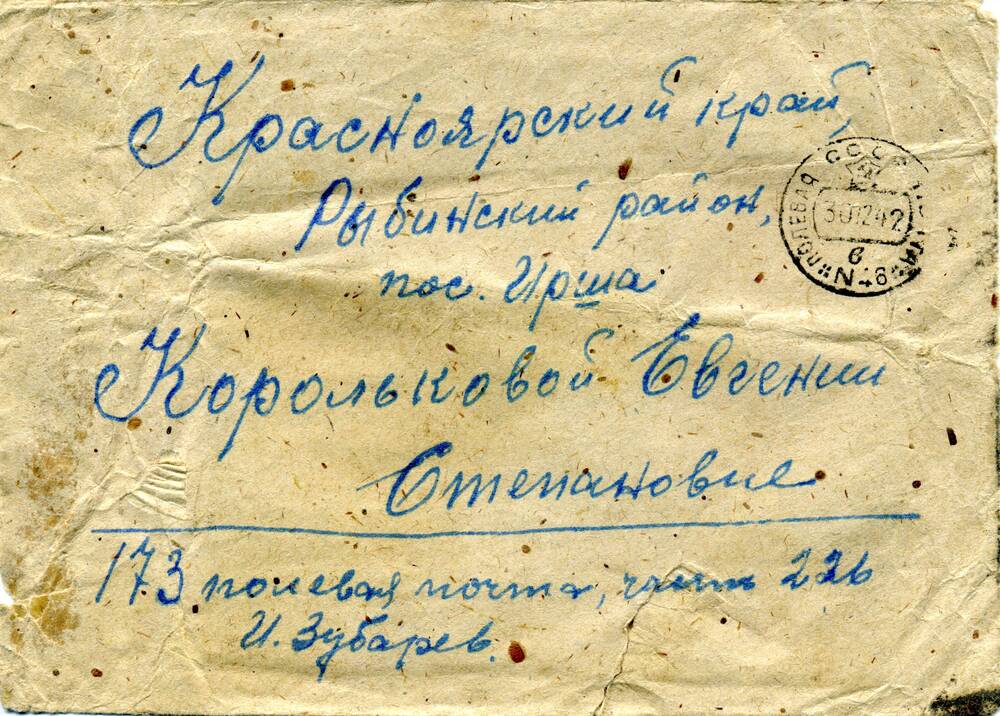 Красноярский край,
Рыбинский район,
пос. Ирша
Корольковой Евгении
Степановне
173 полевая почта, часть 226
И. Зубарев.
СССР
ПОЛЕВАЯ
30 12 42
б